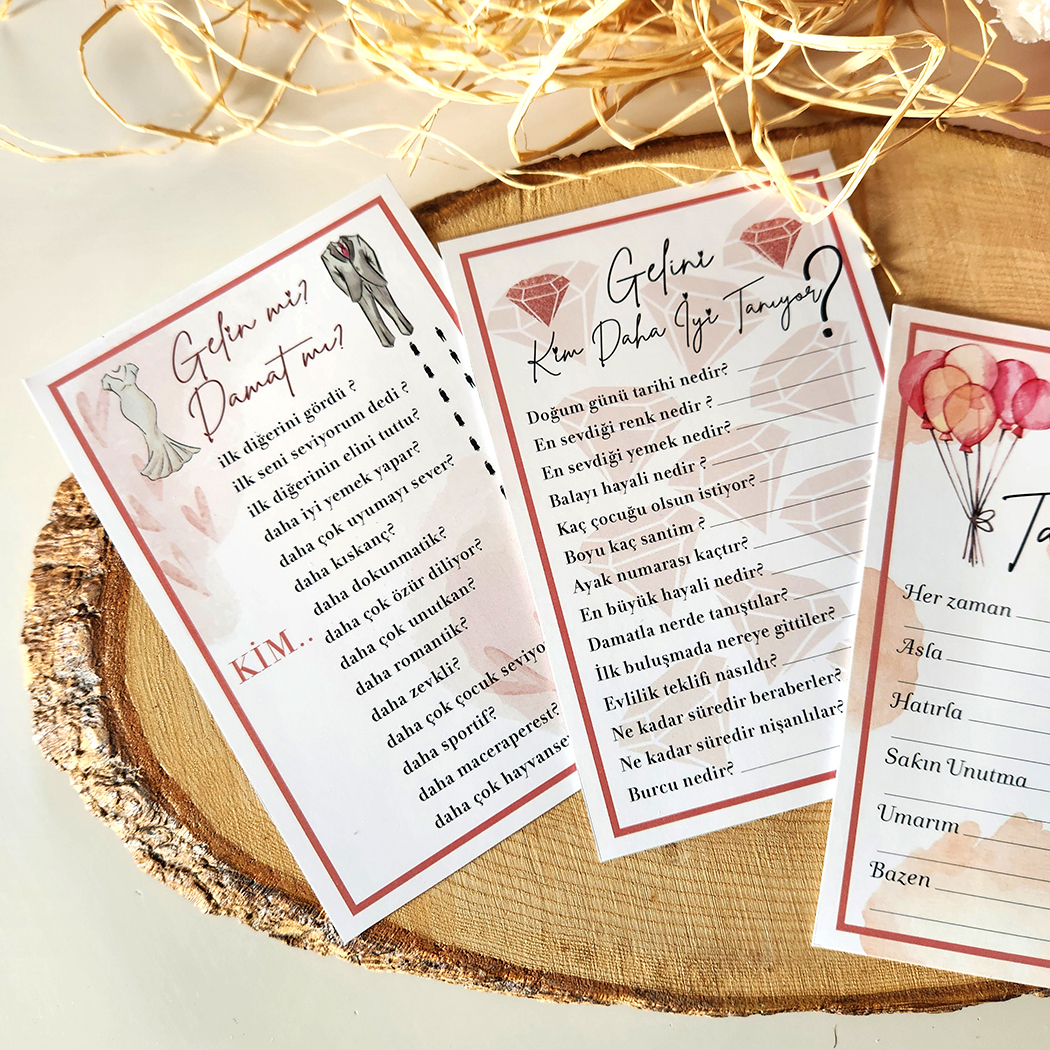 Gelin mi?
Damat mı?
KİM..
ilk diğerini gördü ?
ilk seni seviyorum dedi ?
ilk diğerinin elini tuttu?
daha iyi yemek yapar?
daha çok uyumayı sever?
daha kıskanç?
daha dokunmatik?
daha çok özür diliyor?
daha çok unutkan?
daha romantik?
daha zevkli?
daha çok çocuk seviyo
daha sportif?
daha maceraperest?
daha çok hayvanse
Gelini
Kim Daha İyi Tanıyor?
Doğum günü tarihi nedir?
En sevdiği renk nedir ?
En sevdiği yemek nedir?
Balayı hayali nedir ?
Kaç çocuğu olsun istiyor?
Boyu kaç santim ?
Ayak numarası kaçtır?
En büyük hayali nedir?
Damatla nerde tanıştılar?
İlk buluşmada nereye gittiler?
Evlilik teklifi nasıldı?
Ne kadar süredir beraberler?
Ne kadar süredir nişanlılar?
Burcu nedir?
Ta
Her zaman
Asla
Hatırla
Sakın Unutma
Umarım
Bazen